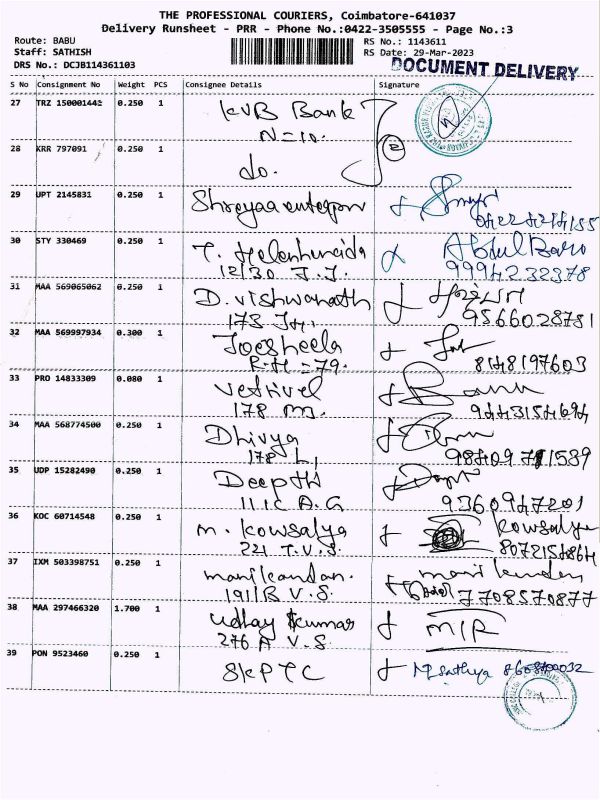 THE PROFESSIONAL COURIERS, Coimbatore-641037
Delivery Runsheet - PRR - Phone No.:0422-3505555 - Page No.:3
Route: BABU
RS No.: 1143611
Staff: SATHISH
RS Date: 29-Mar-2023
DRS No.: DCJB114361103
DOCUMENT DELIVERY
S No Consignment No Weight PCS Consignee Details Signature
27 TRZ 150001442 0.250 1 KVB Bank
N=10.
28 KRR 797091 0.250 1 do. 2
29 UPT 2145831 0.250 1
30 STY 330469 0.250 1 T. Abdul
12/30 J.J. 9994232378
31 MAA 569065062 0.250 1 D. Vishwanath
173 9566028781
32 MAA 569997934 0.300 1 Joesheela
R.H =79. 8148197603
33 PRO 14833309 0.080 1 Vetrivel
178 m. 9443154694
34 MAA 568774500 0.250 1 Dhivya
178
35 UDP 15282490 0.250 1 Deepthi
11.C A.G 9360947201
36 KOC 60714548 0.250 1 m. Kowsalya Kowsalya
221 T.V.S.
37 IXM 503398751 0.250 1 manikandan.
191/B V.S. 7708570877
38 MAA 297466320 1.700 1 Udhay Kumar
276 A V.S
39 PON 9523460 0.250 1 SKPTC Sathya